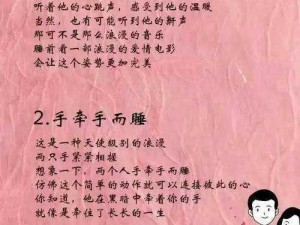 听着他的心跳声，感受到他的温暖
当然，也可能会听到他的鼾声
那可不是那么浪漫的音乐
睡前看一部浪漫的爱情电影
会让这个姿势更加完美
2.手牵手而睡
这是一种天使级别的浪漫
两只手紧紧相握
想象一下，两个人手牵手而睡
仿佛这个简单的动作就可以连接彼此的心
你知道，他在黑暗中牵着你的手
就像是牵住了长长的一生